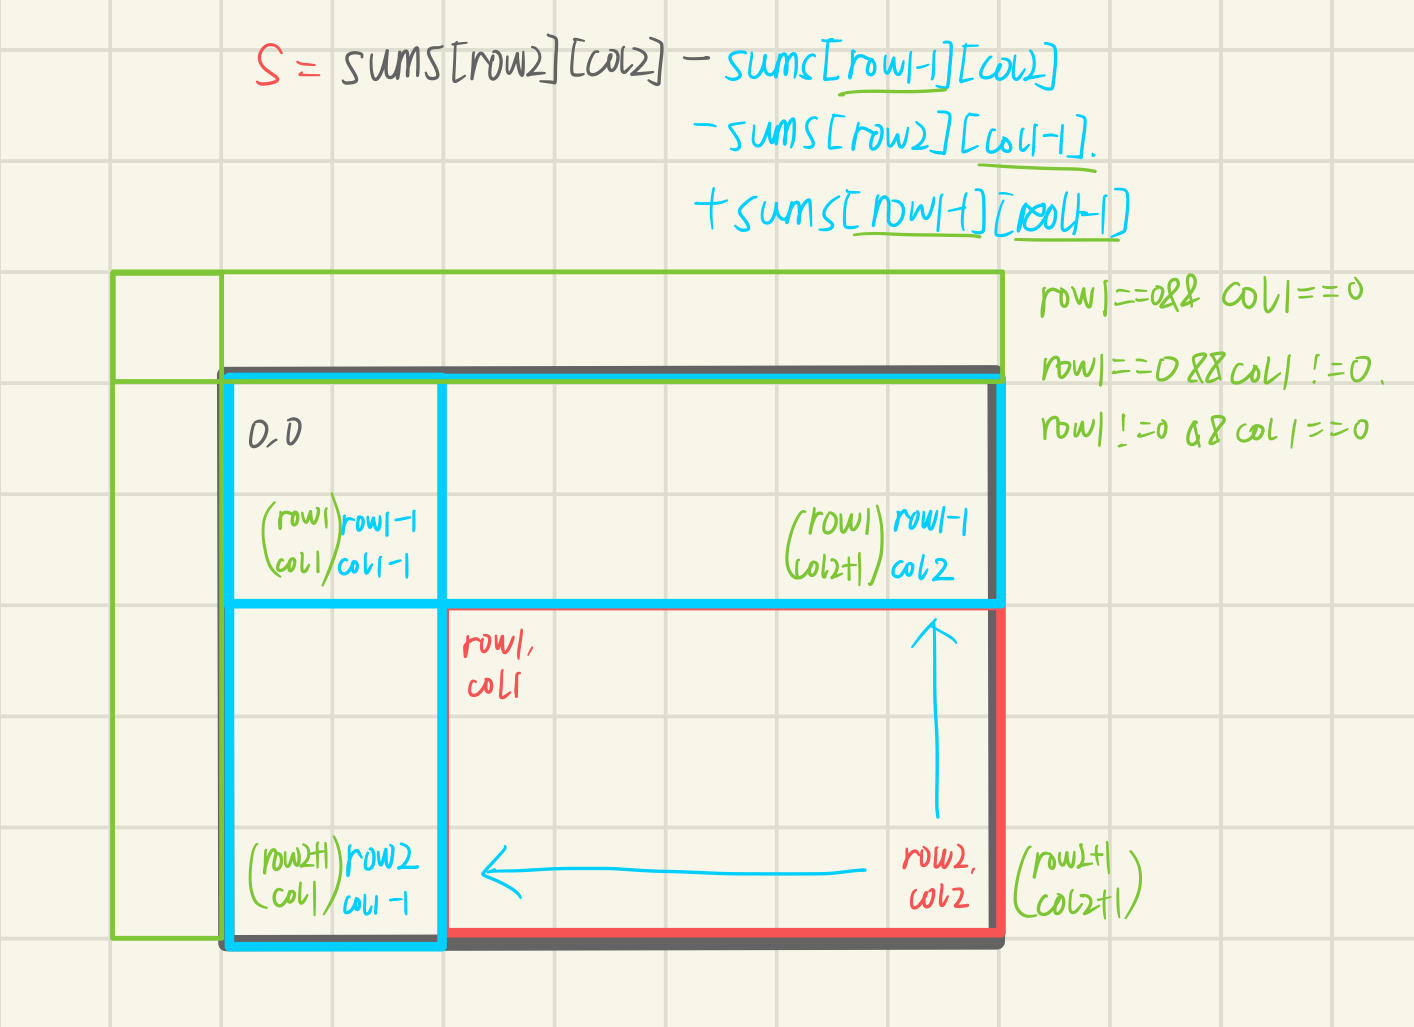 S = sums[row2][col2] - sums[row1-1][col2]
-sums[row2][col1-1].
+sums[row1-1][col1-1]
row1==0&& col1==0
row1==0 && col1 !=0.
row1 !=0 && col1==0
0,0
(row1 col1)
row1-1
col1-1
(row1 col2+1)
row1-1
col2
row1,
col1
(row2+1 col1)
row2
col1-1
row2,
col2
(row2+1 col2+1)